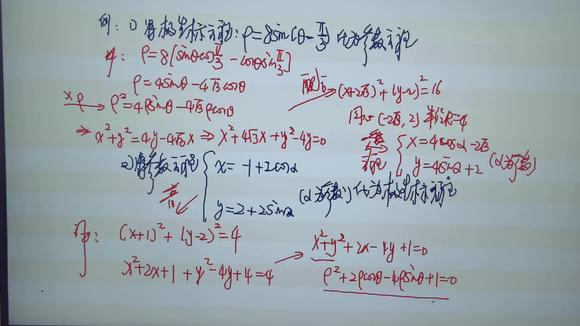 例：1) 将极坐标方程：ρ=8sin(θ-π/3 化为参数方程
解：ρ=8[sinθcosπ/3-cosθsinπ/3]
ρ=4sinθ-4√3cosθ
×ρ→ ρ²=4ρsinθ-4√3ρcosθ
⇒ x²+y²=4y-4√3x ⇒ x²+4√3x+y²-4y=0
配方 (x+2√3)²+(y-2)²=16
圆心(-2√3,2) 半径r=4
参数方程 { x=4cosα-2√3
y=4sinα+2 (α为参数)
2) 将参数方程 { x=-1+2cosα
y=2+2sinα (α为参数) 化为极坐标方程
解：(x+1)²+(y-2)²=4
x²+2x+1+y²-4y+4=4
x²+y²+2x-4y+1=0
ρ²+2ρcosθ-4ρsinθ+1=0